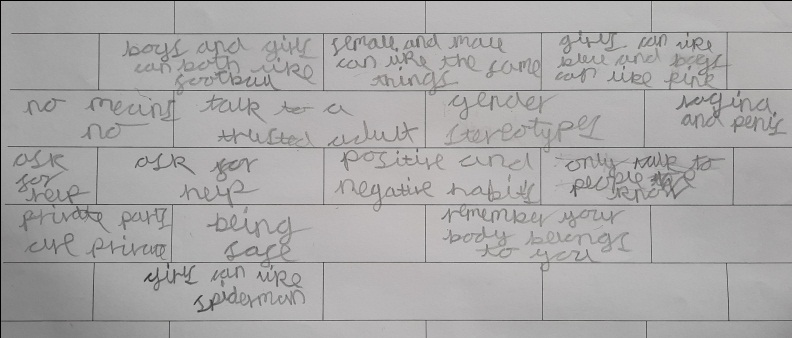 boys and girls
can both like
football
female and male
can like the same
things
girls can like
blue and boys
can like pink
no means
no
talk to a
trusted adult
gender
stereotypes
vagina
and penis
ask
for
help
ask for
help
positive and
negative habits
only talk to
people
know
private parts
are private
being
safe
remember your
body belongs
to you
girls can like
spiderman